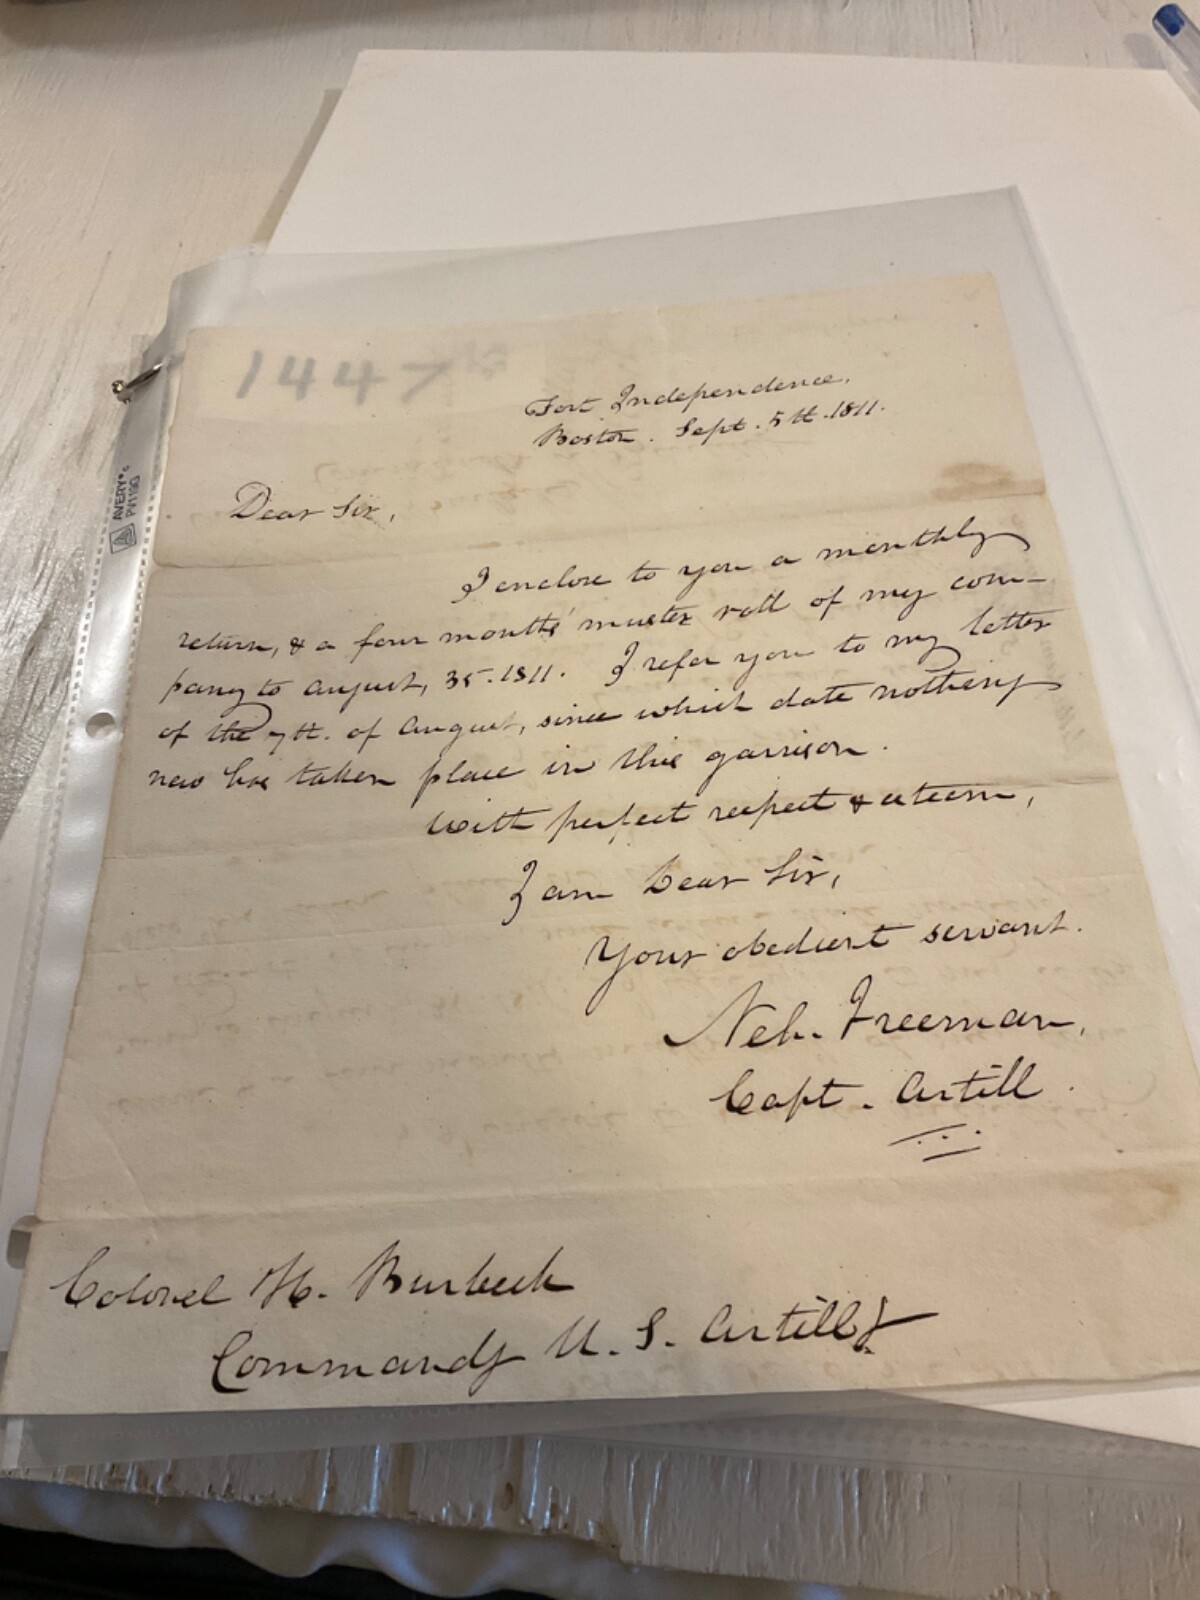 1447
Fort Independence,
Boston. Sept. 5th. 1811.
Dear Sir,
I enclose to you a monthly
return, & a four months' muster roll of my com-
pany to August, 31. 1811. I refer you to my letter
of the 7th. of August, since which date nothing
new has taken place in this garrison.
With perfect respect & esteem,
I am Dear Sir,
Your obedient servant.
Neh. Freeman,
Capt. Artill.
Colonel H. Burbeck
Commandg U. S. Artilly.
AVERY®
PV119G